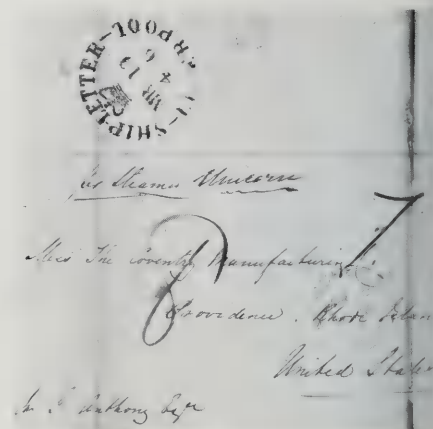 SHIP LETTER
per Steamer Unicorn
7
Mess The Coventry Manufacturing
Providence. Rhode Islan
United State
Anthony Esqr